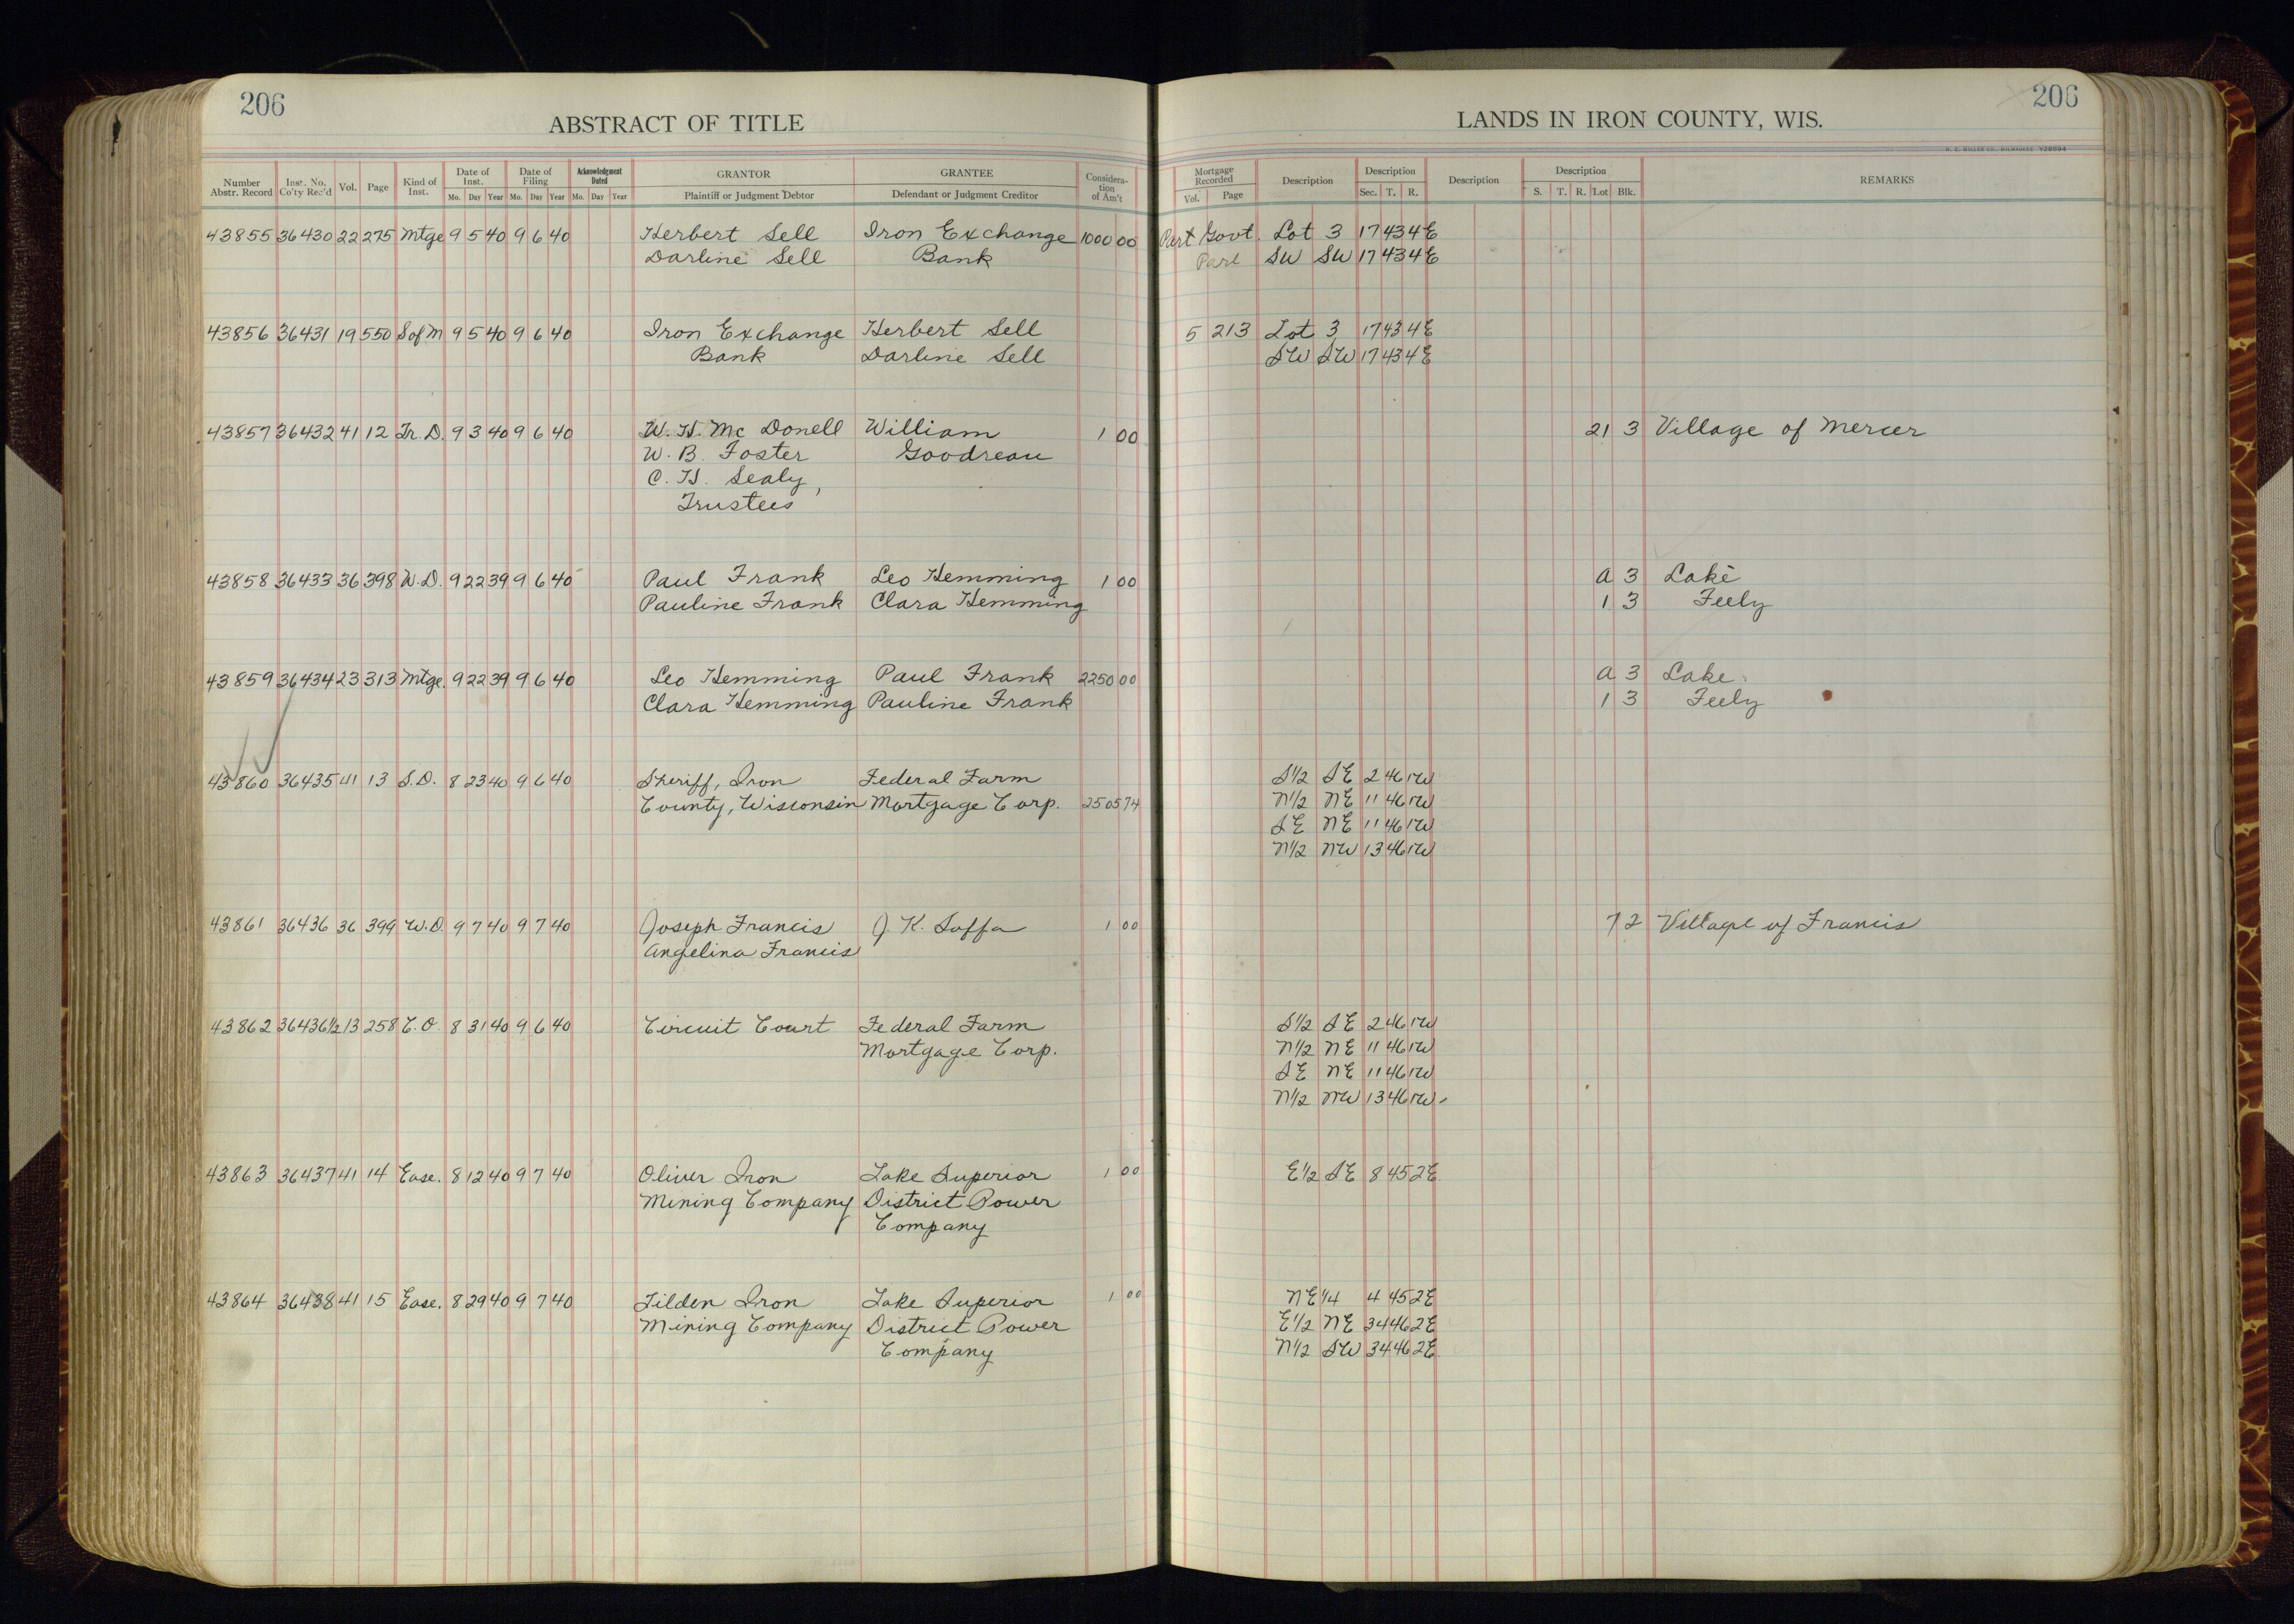 206
ABSTRACT OF TITLE
LANDS IN IRON COUNTY, WIS.
206
Number Abstr. Record Inst. No. Co'ty Rec'd Vol. Page Kind of Inst. Date of Inst. Mo. Day Year Date of Filing Mo. Day Year Acknowledgment Dated Mo. Day Year GRANTOR Plaintiff or Judgment Debtor GRANTEE Defendant or Judgment Creditor Consideration of Am't Mortgage Recorded Vol. Page Description Description Sec. T. R. Description Description S. T. R. Lot Blk. REMARKS
43855 36430 22 275 Mtge 9 5 40 9 6 40 Herbert Sell Iron Exchange 1000 00 Part Govt. Lot 3 17 43 4E
Darline Sell Bank Part SW SW 17 43 4E
43856 36431 19 550 S of M 9 5 40 9 6 40 Iron Exchange Herbert Sell 5 213 Lot 3 17 43 4E
Bank Darline Sell SW SW 17 43 4E
43857 36432 41 12 Tr. D. 9 3 40 9 6 40 W. H. Mc Donell William 1 00 21 3 Village of Mercer
W. B. Foster Goodreau
C. H. Sealy,
Trustees
43858 36433 36 398 W.D. 9 22 39 9 6 40 Paul Frank Leo Hemming 1 00 A 3 Lake
Pauline Frank Clara Hemming 1 3 Feely
43859 36434 23 313 Mtge. 9 22 39 9 6 40 Leo Hemming Paul Frank 2250 00 A 3 Lake
Clara Hemming Pauline Frank 1 3 Feely
43860 36435 41 13 S.D. 8 23 40 9 6 40 Sheriff, Iron Federal Farm S1/2 SE 2 46 1W
County, Wisconsin Mortgage Corp. 2505 74 N1/2 NE 11 46 1W
SE NE 11 46 1W
N1/2 NW 13 46 1W
43861 36436 36 399 W.D. 9 7 40 9 7 40 Joseph Francis J. K. Saffa 1 00 7 2 Village of Francis
Angelina Francis
43862 36436 1/2 13 258 C.O. 8 31 40 9 6 40 Circuit Court Federal Farm S1/2 SE 2 46 1W
Mortgage Corp. N1/2 NE 11 46 1W
SE NE 11 46 1W
N1/2 NW 13 46 1W
43863 36437 41 14 Ease. 8 12 40 9 7 40 Oliver Iron Lake Superior 1 00 E1/2 SE 8 45 2E
Mining Company District Power
Company
43864 36438 41 15 Ease. 8 29 40 9 7 40 Tilden Iron Lake Superior 1 00 NE 1/4 4 45 2E
Mining Company District Power E1/2 NE 34 46 2E
Company N1/2 SW 34 46 2E